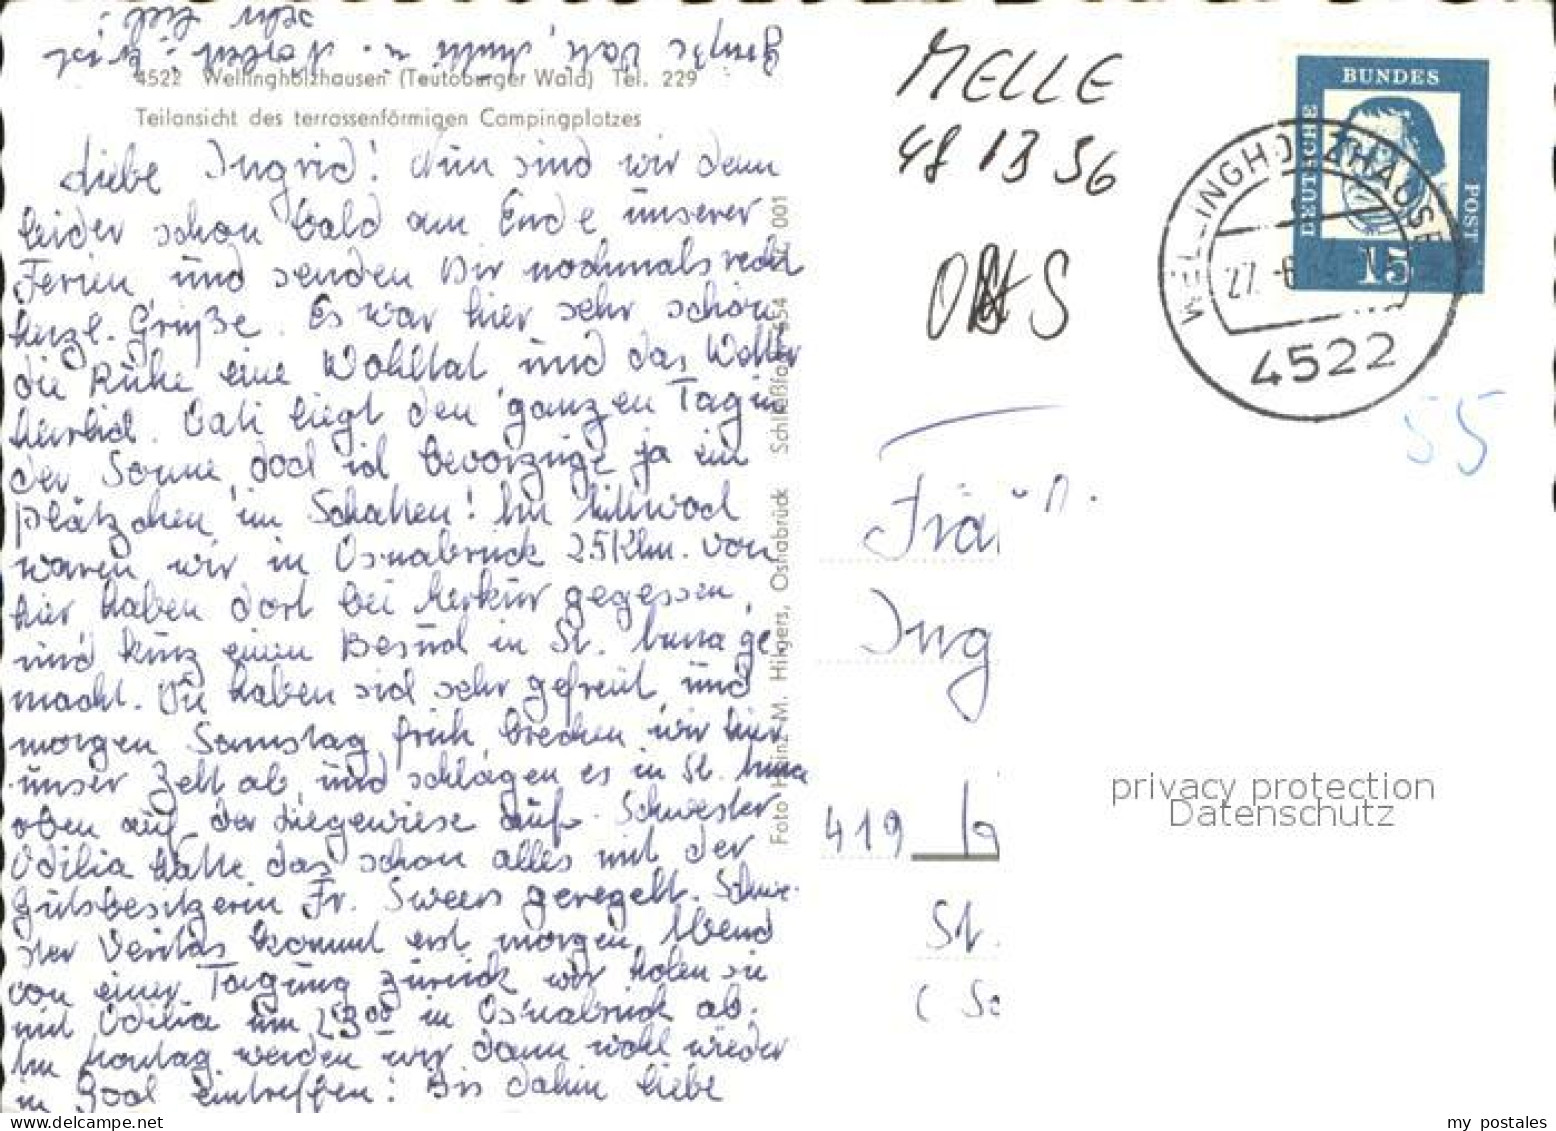 4522 Wellingholzhausen (Teutoburger Wald) Tel. 229
Teilansicht des terrassenförmigen Campingplatzes
Liebe Ingrid! Nun sind wir denn
leider schon bald am Ende unserer
Ferien und senden Dir nochmals recht
herzl. Grüße. Es war hier sehr schön
die Ruhe eine Wohltat und das Wetter
herrlich. Vati liegt den ganzen Tag in
der Sonne, doch ich bevorzuge ja ein
Plätzchen im Schatten! Am Mittwoch
waren wir in Osnabrück 25 Klm. von
hier haben dort bei Merkur gegessen,
und kurz einen Besuch in St. Anna ge
macht. Die haben sich sehr gefreut und
morgen Samstag früh brechen wir hier
unser Zelt ab und schlagen es in St. Anna
oben auf der Liegewiese auf. Schwester
Odilia hatte das schon alles mit der
Gutsbesitzerin Fr. Sweers geregelt. Schwe-
ster Veritas kommt erst morgen Abend
von einer Tagung zurück wir holen sie
mit Odilia um 23 00 in Osnabrück ab.
Am Montag werden wir dann wohl wieder
in Goch eintreffen! Bis dahin liebe
Grüße Vati, Mutti u.
Foto Heinz M. Hilgers, Osnabrück Schließfach 654 001
MELLE
48 13 56
BUNDES
DEUTSCHE
POST
15
WELLINGHOLZHAUSEN
27. -6
4522
55
Ing
419
St.
privacy protection
Datenschutz
my postales